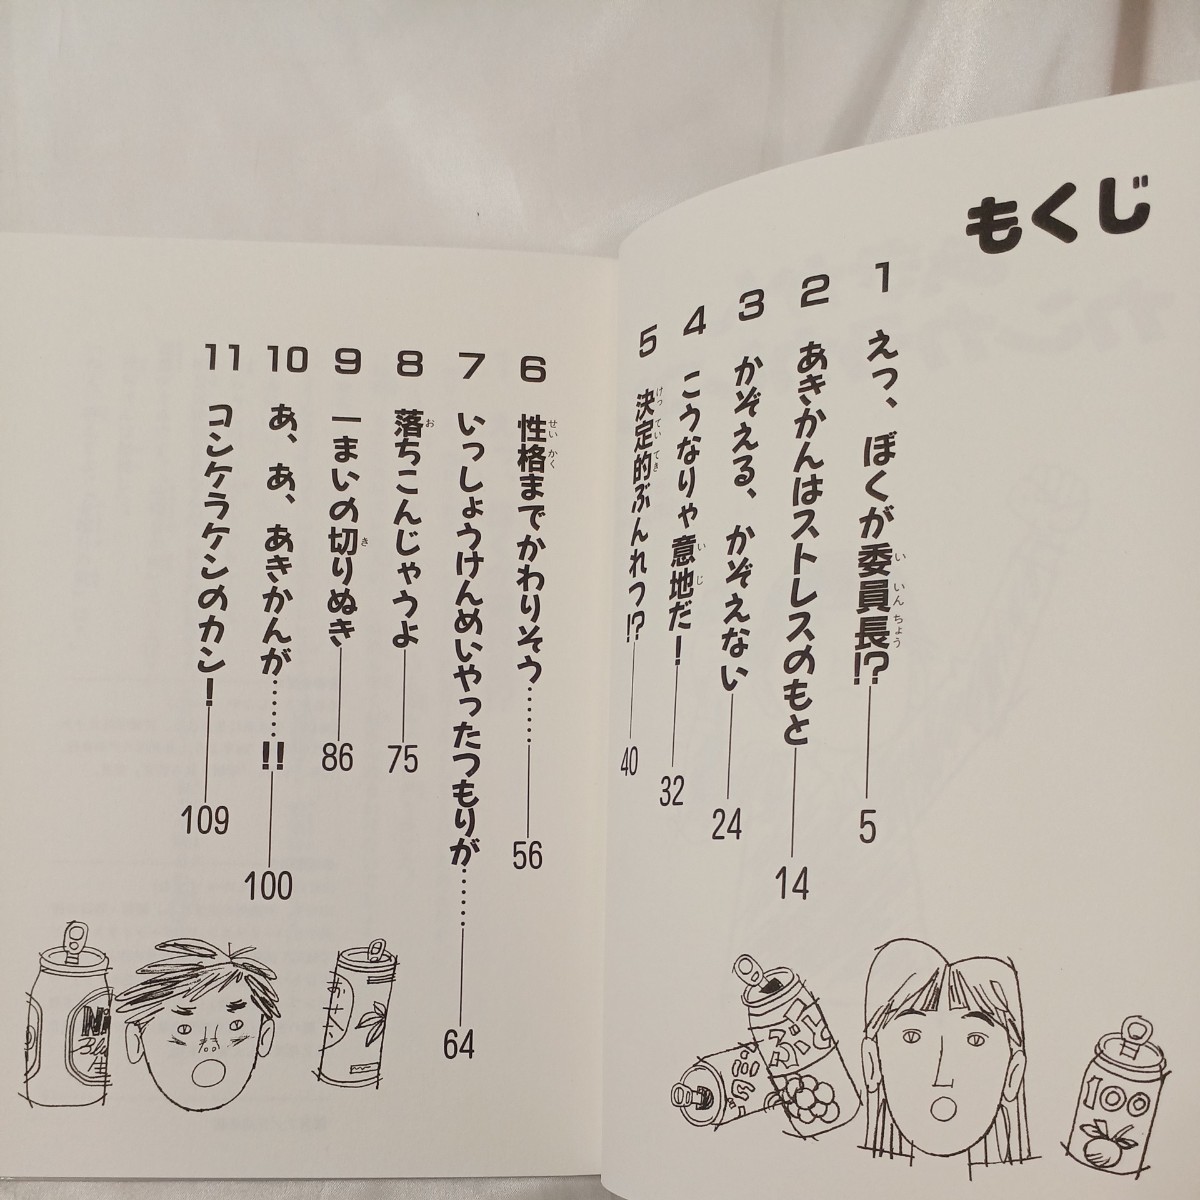 もくじ
1 えっ、ぼくが委員長!?――5
いいんちょう
2 あきかんはストレスのもと――14
3 かぞえる、かぞえない――24
4 こうなりゃ意地だ！――32
いじ
5 決定的ぶんれつ!?――40
けっていてき
6 性格までかわりそう……――56
せいかく
7 いっしょうけんめいやったつもりが……――64
8 落ちこんじゃうよ――75
お
9 一まいの切りぬき――86
き
10 あ、あ、あきかんが……!!――100
11 コンケラケンのカン！――109
100